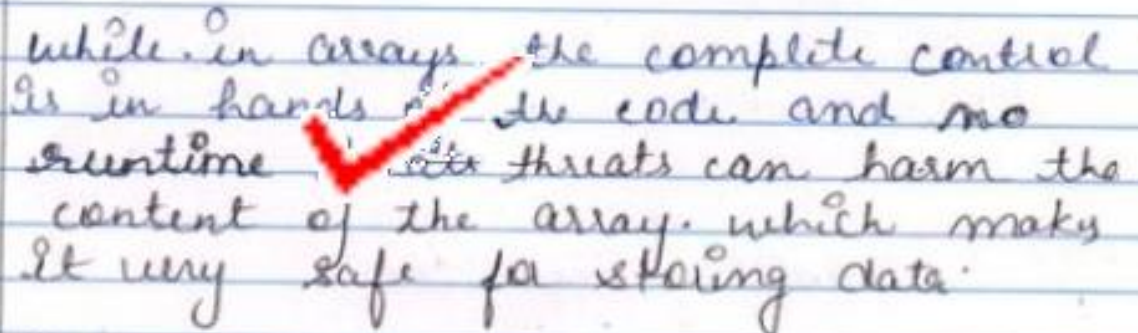 while in arrays the complete control
is in hands the code and no
runtime threats can harm the
content of the array. which makes
It very safe for storing data.